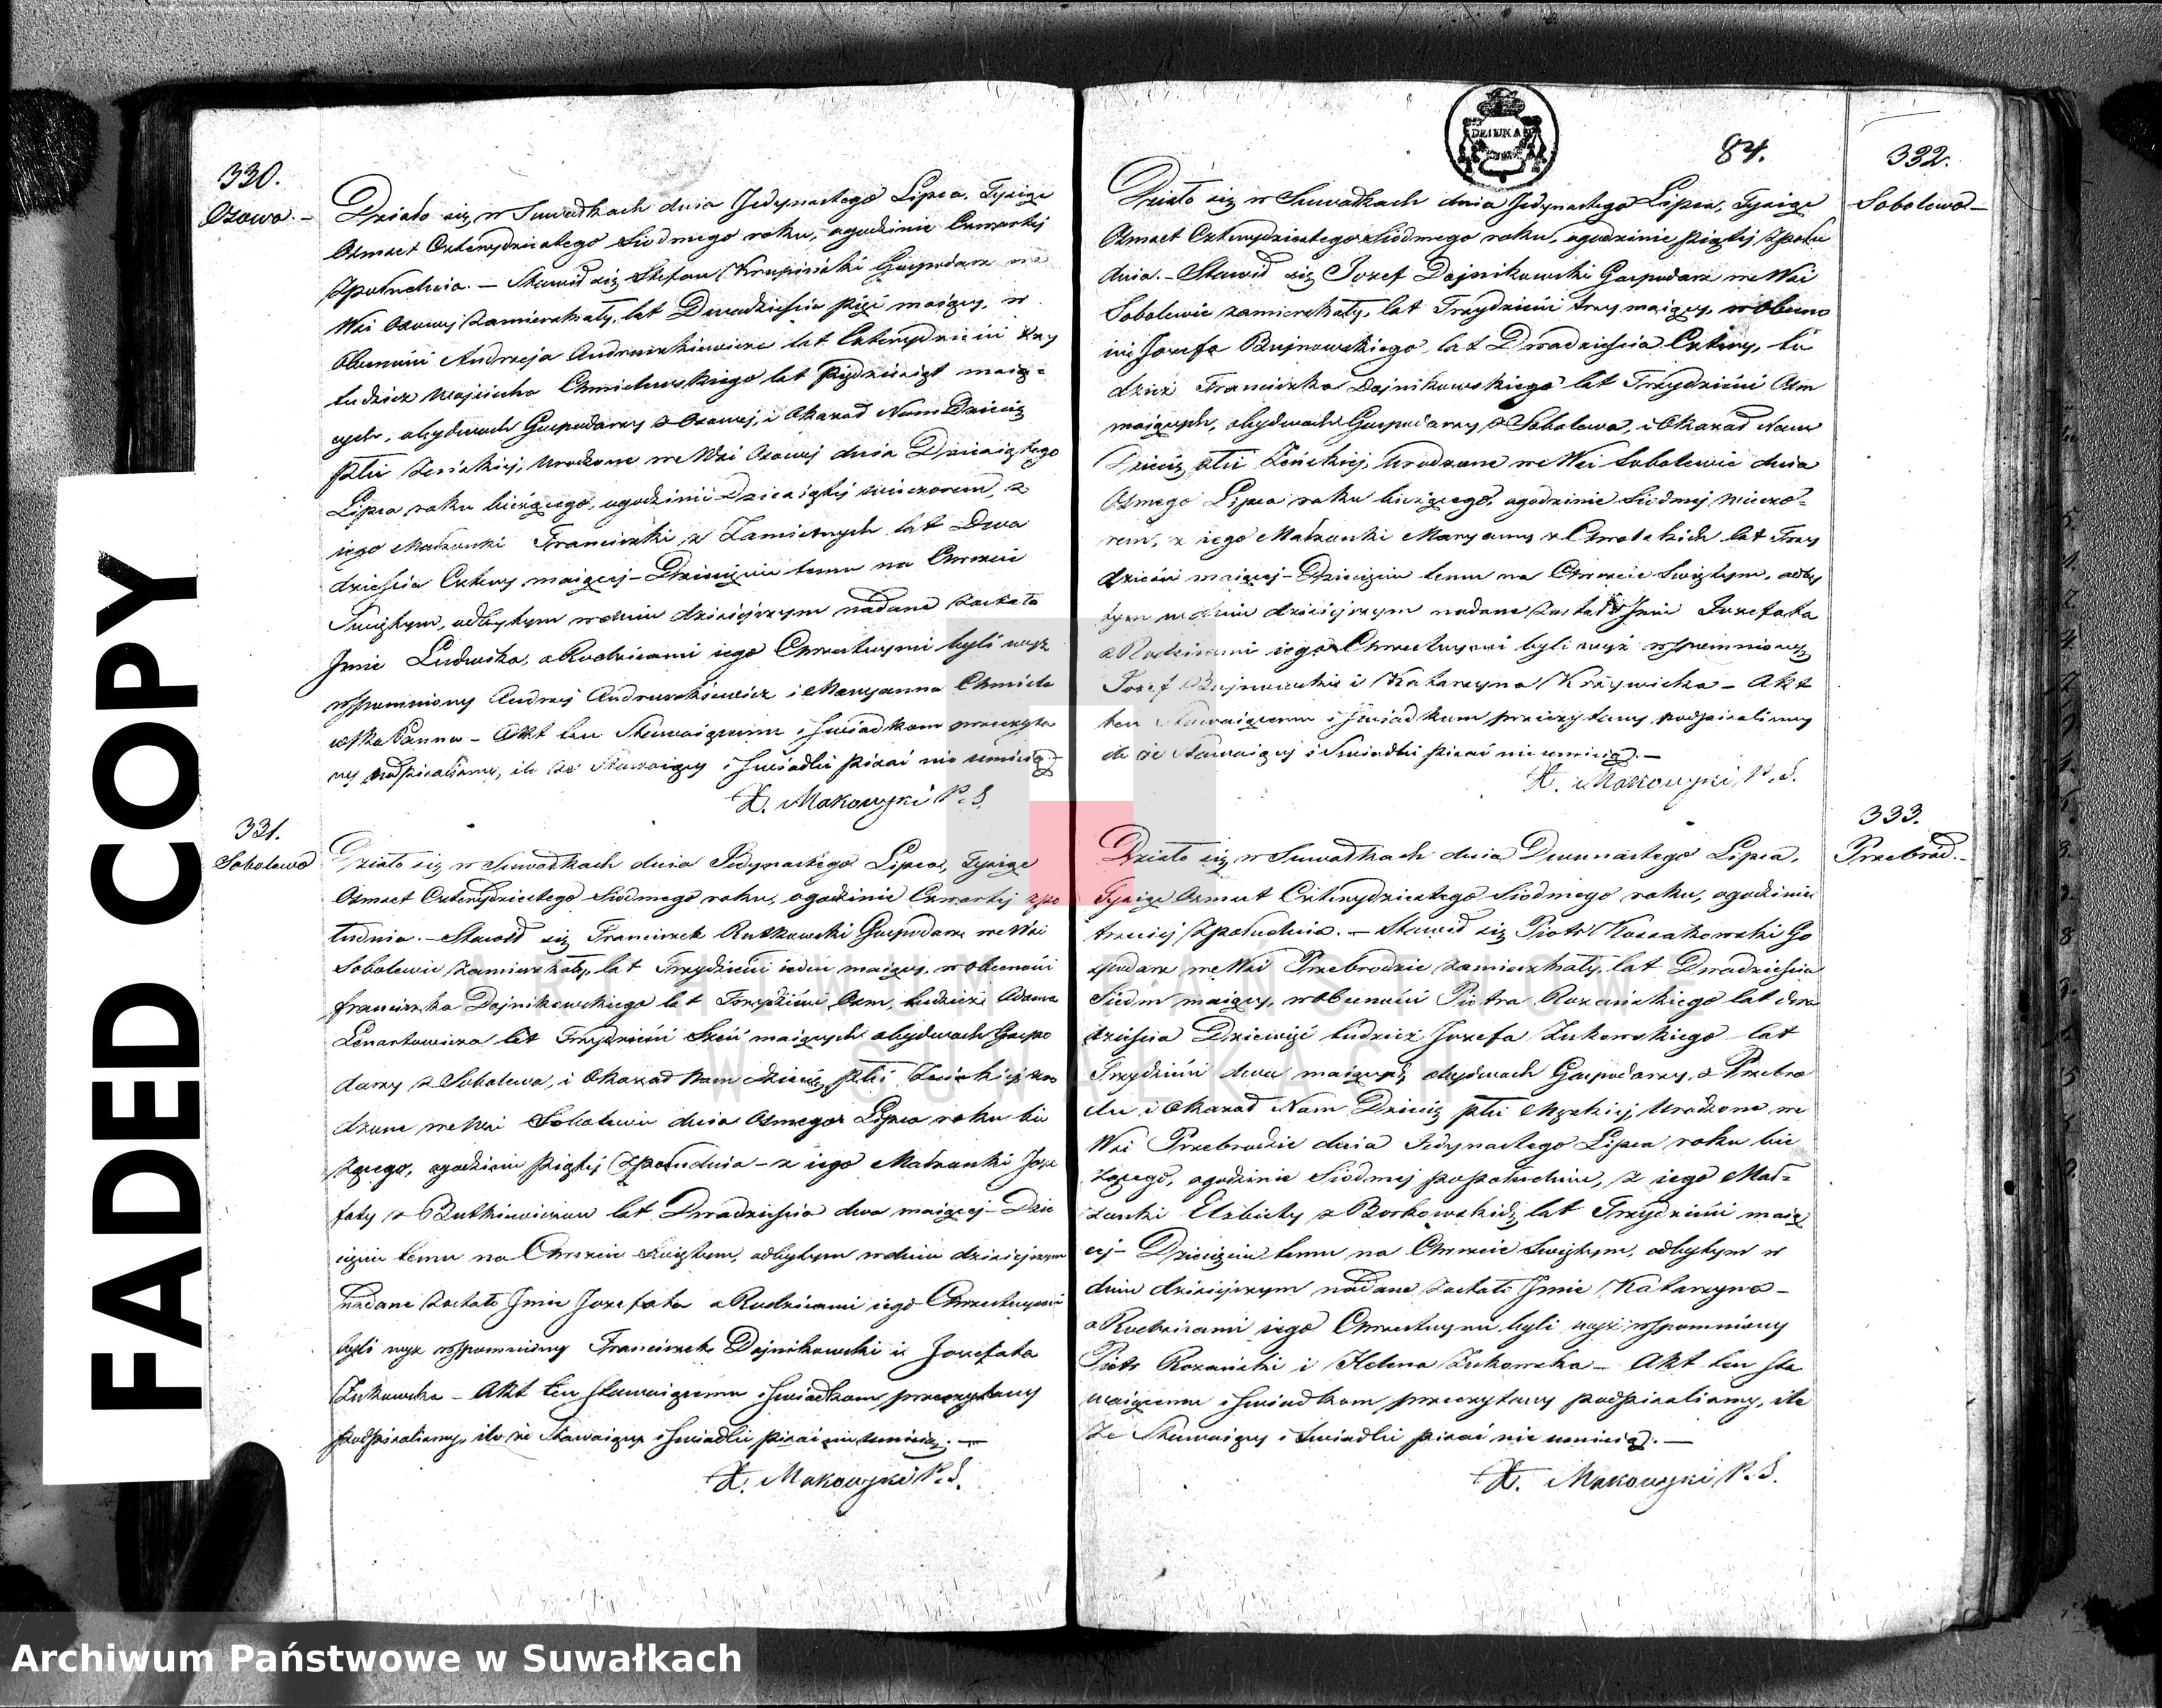 FADED COPY
330.
Ozowa. -
Działo się w Suwałkach dnia Jedynastego Lipca, Tysiąc
Ośmset Czterydziestego Siódmego roku, ogodzinie Czwartej
Zpołudnia. — Stawił się Stefan Krupiński Gospodarz we
Wsi Ozowej Zamieszkały, lat Dwadzieścia pięć maiący, w
Obecności Andrzeja Andruszkiewicza lat Czterydzieści trzy
tudzież Wojciecha Chmielewskiego lat Pięćdziesiąt maią-
cych, obydwoch Gospodarzy z Ozowej, i Okazał Nam Dziecię
płci Żeńskiej, Urodzone we Wsi Ozowej dnia Dziewiątego
Lipca roku bieżącego, ogodzinie Dziewiątej wieczorem, z
iego Małżonki Franciszki z Zamietnych lat Dwa
dzieścia Cztery maiącej - Dziecięciu temu na Chrzcie
Świętym, odbytym w dniu dzisiejszym nadane Zostało
Jmie Ludwika, a Rodzicami iego Chrzestnymi byli wyż
wspomniony Andrzej Andruszkiewicz i Maryanna Chmiele
wska Panna - Akt ten Stawaiącemu i Świadkom przeczyta
ny podpisaliśmy, ile że Stawaiący i Świadki pisać nie umieią
X. Makowski P. S.
331.
Sobolewo
Działo się w Suwałkach dnia Jedynastego Lipca, Tysiąc
Ośmset Czterydziestego Siódmego roku, ogodzinie Czwartej zpo
łudnia. - Stawił się Franciszek Rutkowski Gospodarz we Wsi
Sobolewie Zamieszkały, lat Trzydzieści ieden maiący, w obecności
Franciszka Dajnikowskiego lat Trzydzieści Ośm, tudzież Adama
Lenartowicza lat Trzydzieści Sześć maiących obydwoch Gospo
darzy z Sobolewa, i Okazał Nam Dziecię płci Żeńskiej uro
dzone we Wsi Sobolewie dnia Osmego Lipca roku bie
żącego, ogodzinie piątej Zpołudnia - z iego Małżonki Joze
faty z Butkiewiczow lat Dwadzieścia dwa maiącej - Dzie
cięciu temu na Chrzcie Świętym, odbytym w dniu dzisiejszym
nadane Zostało Jmie Jozefata a Rodzicami iego Chrzestnymi
byli wyż wspomniony Franciszek Dajnikowski i Jozefata
Żukowska - Akt ten Stawaiącemu i Świadkom przeczytany
podpisaliśmy, ile że Stawaiący i Świadki pisać nie umieią. —
X. Makowski P. S.
DZIEKA
84.
332.
Sobolewo -
Działo się w Suwałkach dnia Jedynastego Lipca, Tysiąc
Ośmset Czterydziestego Siódmego roku, ogodzinie piątej Zpołu
dnia. - Stawił się Jozef Dajnikowski Gospodarz we Wsi
Sobolewie zamieszkały, lat Trzydzieści trzy maiący, w Obecno
ści Jozefa Bujnowskiego lat Dwadzieścia Cztery, tu
dzież Franciszka Dajnikowskiego lat Trzydzieści Ośm
maiących, obydwoch Gospodarzy z Sobolewa, i Okazał Nam
Dziecię płci Żeńskiej, Urodzone we Wsi Sobolewie dnia
Osmego Lipca roku bieżącego, ogodzinie Siódmej wieczo-
rem, z iego Małżonki Maryanny z Chwolskich lat Trzy
dzieści maiącej - Dziecięciu temu na Chrzcie Świętym, odby
tym w dniu dzisiejszym nadane Zostało Jmie Jozefata
a Rodzicami iego Chrzestnymi byli wyż wspomniony
Jozef Bujnowski i Katarzyna Krzywicka - Akt
ten Stawaiącemu i Świadkom przeczytany podpisaliśmy
ile że Stawaiący i Świadki pisać nie umieią. —
X. Makowski P. S.
333.
Przebród. -
Działo się w Suwałkach dnia Dwunastego Lipca,
Tysiąc Ośmset Czterydziestego Siódmego roku, ogodzinie
trzeciej Zpołudnia. — Stawił się Piotr Kossakowski Go
spodarz we Wsi Przebrodzie Zamieszkały, lat Dwadzieścia
Siedm maiący, w obecności Piotra Rozańskiego lat dwa
dzieścia Dziewięć tudzież Jozefa Żukowskiego lat
Trzydzieści dwa maiących, obydwoch Gospodarzy, z Przebro
du i Okazał Nam Dziecię płci Męzkiej Urodzone we
Wsi Przebrodzie dnia Jedynastego Lipca roku bie
żącego, ogodzinie Siódmej popołudniu, z iego Mał-
żonki Elzbiety z Borkowskich, lat Trzydzieści maią
cej - Dziecięciu temu na Chrzcie Świętym, odbytym w
dniu dzisiejszym nadane Zostało Jmie Katarzyna -
a Rodzicami iego Chrzestnymi byli wyż wspomniony
Piotr Rozański i Helena Żukowska - Akt ten Sta
waiącemu i Świadkom przeczytany podpisaliśmy, ile
że Stawaiący i Świadki pisać nie umieią. —
X. Makowski P. S.
Archiwum Państwowe w Suwałkach